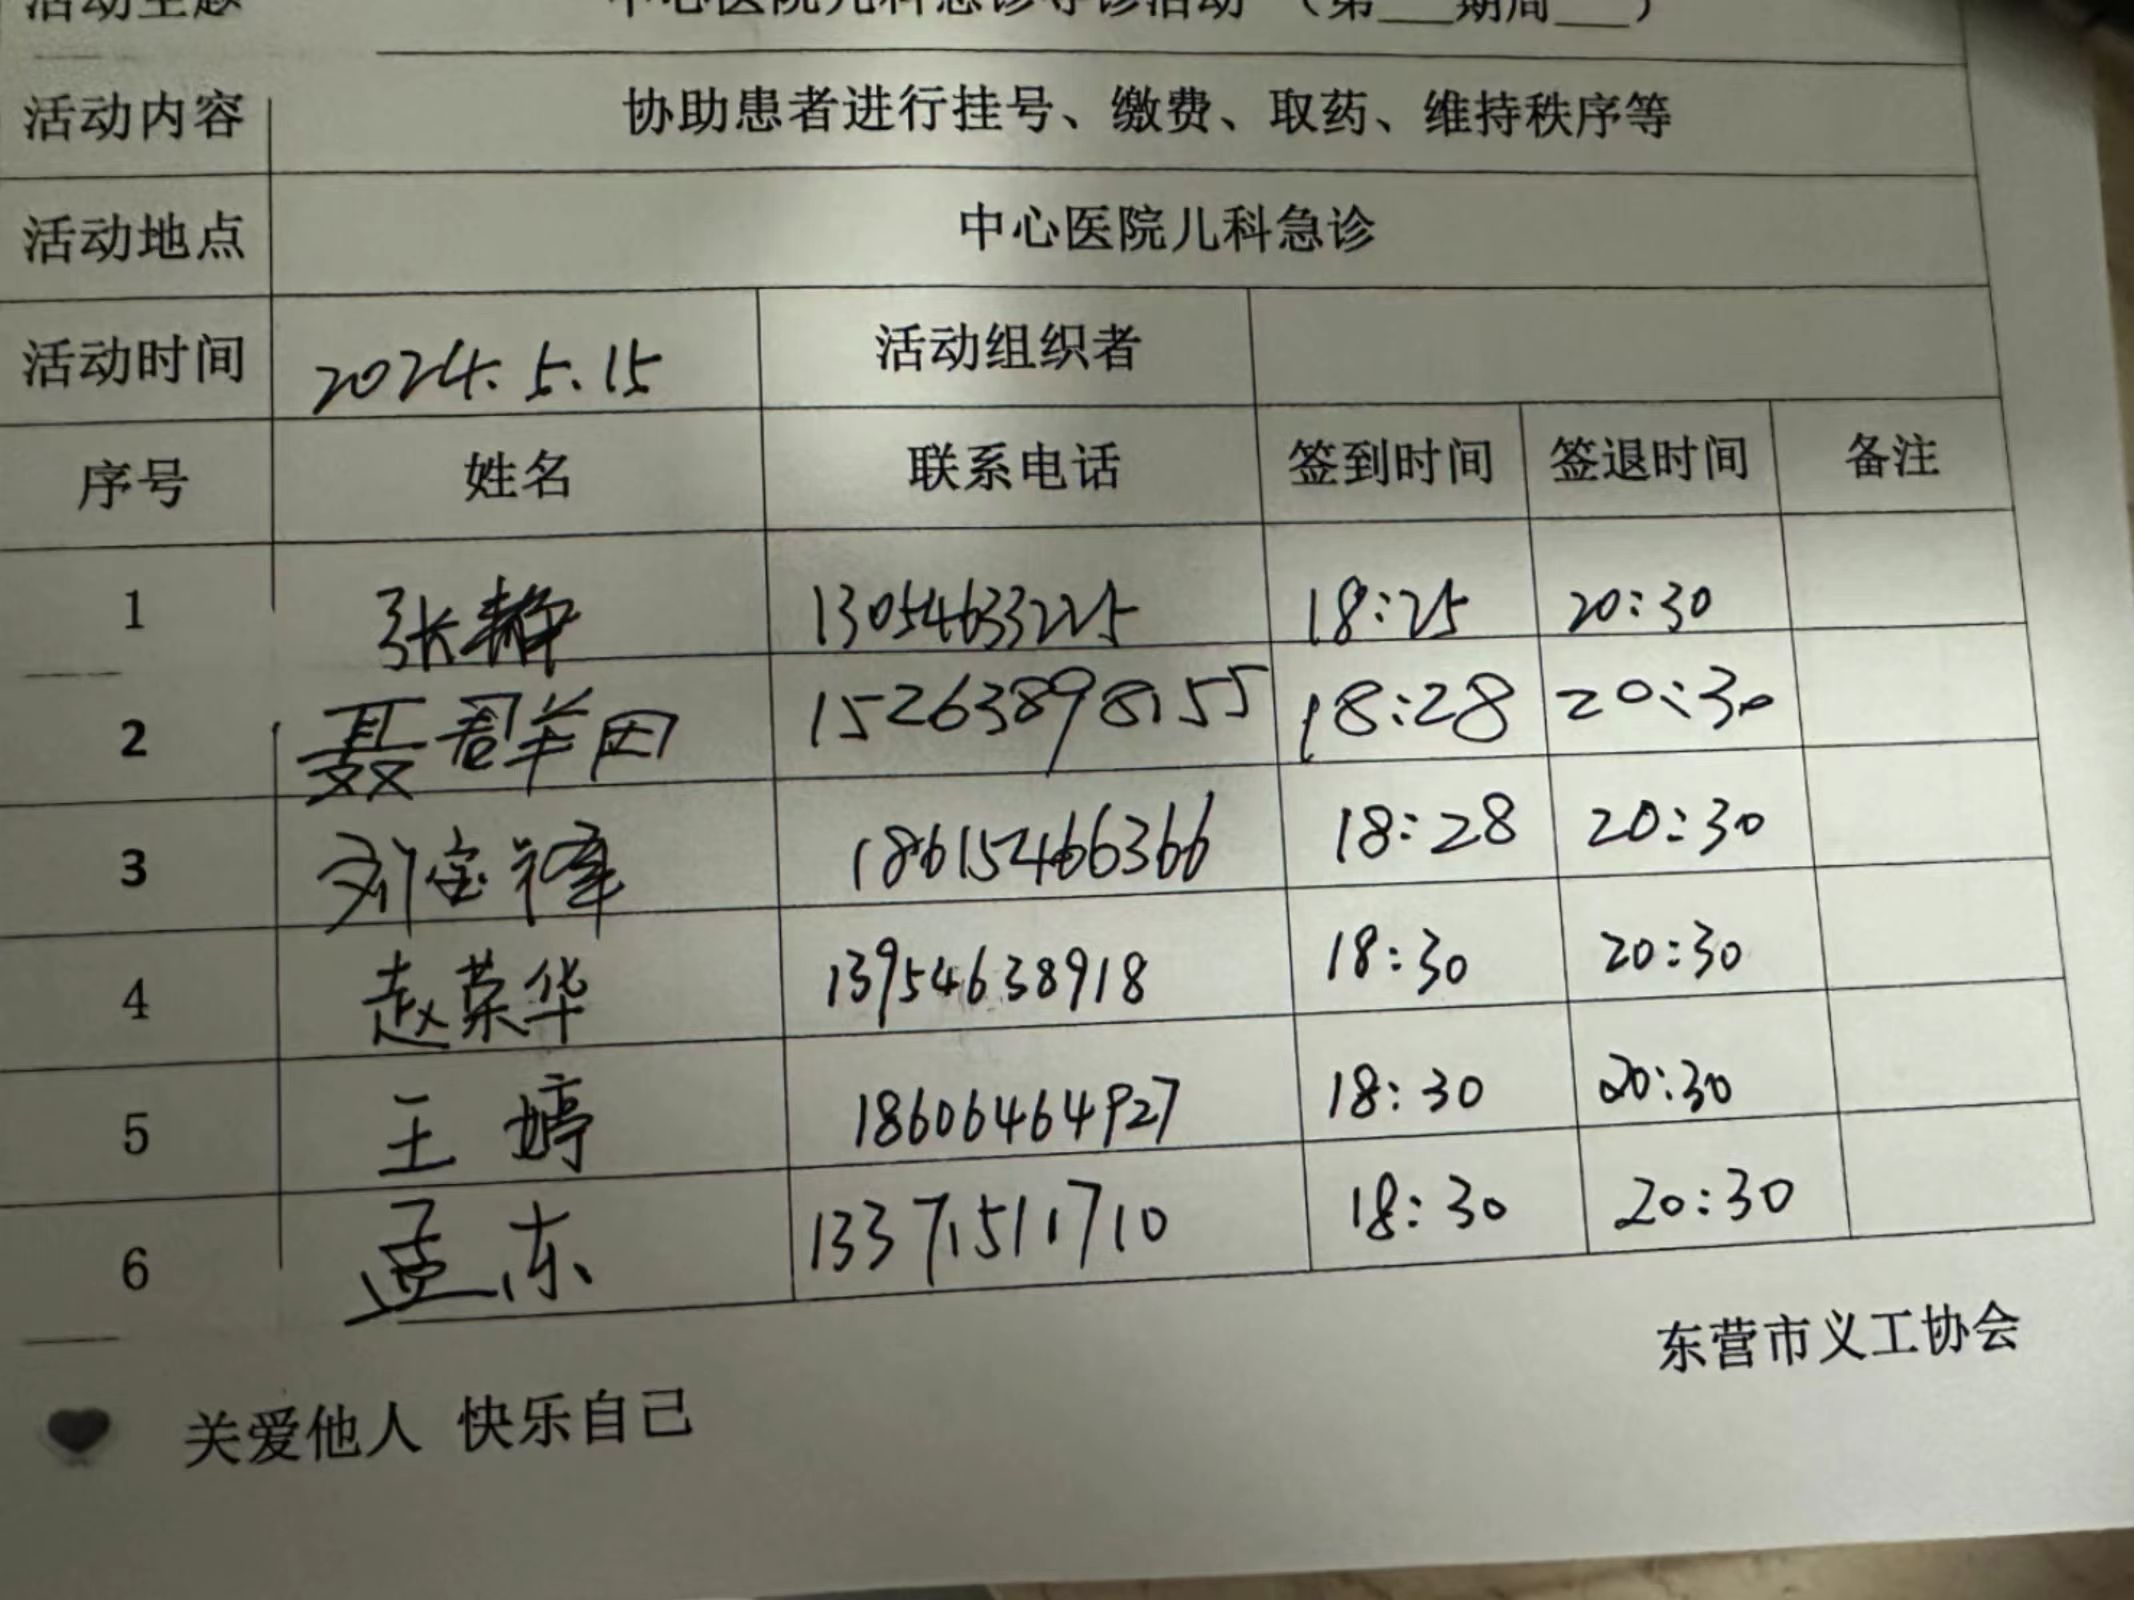 活动主题 中心医院儿科急诊导诊活动 (第___期周___)
活动内容 协助患者进行挂号、缴费、取药、维持秩序等
活动地点 中心医院儿科急诊
活动时间 2024.5.15 活动组织者
序号 姓名 联系电话 签到时间 签退时间 备注
1 张静 13054633225 18:25 20:30
2 聂群田 15263898155 18:28 20:30
3 刘宝禄 18615466366 18:28 20:30
4 赵荣华 13954638918 18:30 20:30
5 王婷 18606464927 18:30 20:30
6 孟东 13371511710 18:30 20:30
东营市义工协会
关爱他人 快乐自己